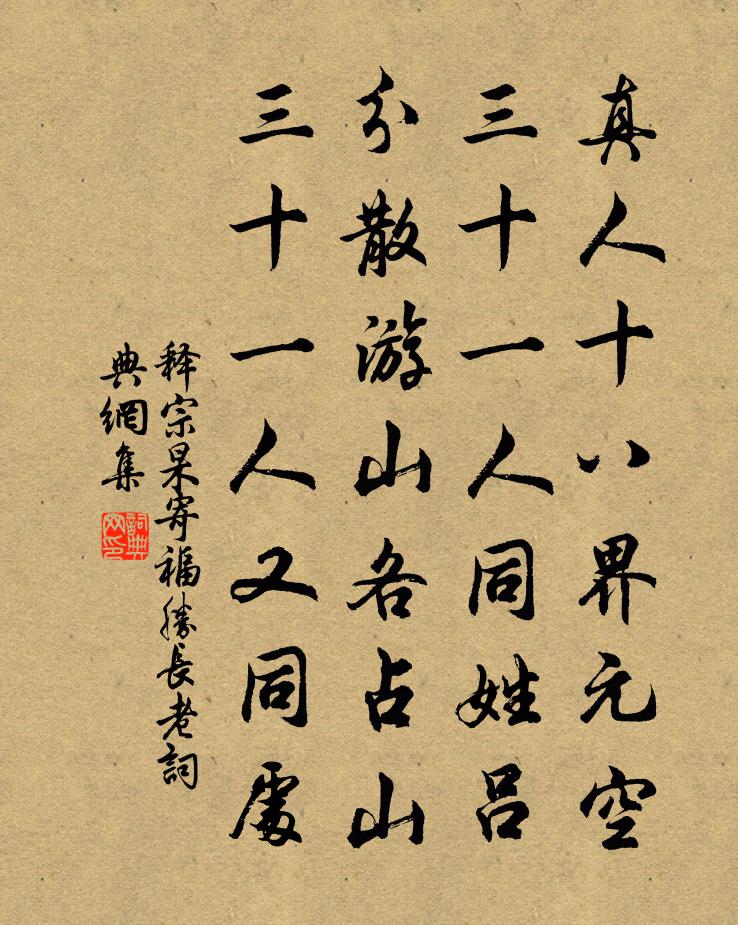 真人十八界元空
三十一人同姓吕
分散游山各占山
三十一人又同處
释宗杲寄福勝長老詞
典網集
詞典
网印